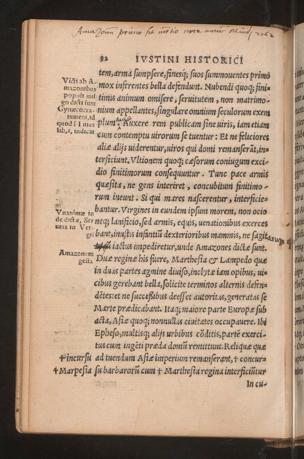 92 IVSTINI HISTORICI
tem, arma sumpsere, finesq; suos summouentes primò
mox inferentes bella defendunt. Nubendi quoq; fini-
timis animum omisere, seruitutem, non matrimo-
nium appellantes, singulare omnium seculorum exem
plum. Auxere rem publicam sine uiris, iam etiam
cum contemptu uirorum se tuentur: Et ne feliciores
aliæ alijs uiderentur, uiros qui domi remanserāt, in-
terficiunt, Vltionem quoq; cæsorum coniugum exci-
dio finitimorum consequuntur. Tunc pace armis
quæsita, ne gens interiret, concubitum finitimo-
rum ineunt. Si qui mares nascerentur, interficie-
bantur. Virgines in eundem ipsum morem, non ocio
neq; lanificio, sed armis, equis, uenationibus exercet
bant, inustis infantiū dexterioribus mammis, ne sagit
iactus impediretur, unde Amazones dictæ sunt.
Duæ reginæ his fuere, Marthesia & Lampedo quæ
in duas partes agmine diuiso, inclytæ iam opibus, ui-
cibus gerebant bella, solicite terminos alternis defen-
dētes: et ne successibus deesset autoritas, generatas se
Marte prædicabant. Itaq; maiore parte Europæ sub
acta, Asiæ quoq; nonnullas ciuitates occupauere. Ibi
Epheso, multisq; alijs urbibus cōditis, partē exerci-
tus cum ingēti præda domū remittunt. Reliquæ quæ
† incursu ad tuendum Asiæ imperium remanserant, † concur-
† Marpesia su barbarorū cum † Marthesia regina interficiūtur
In cu-
Amazonum
gesta.